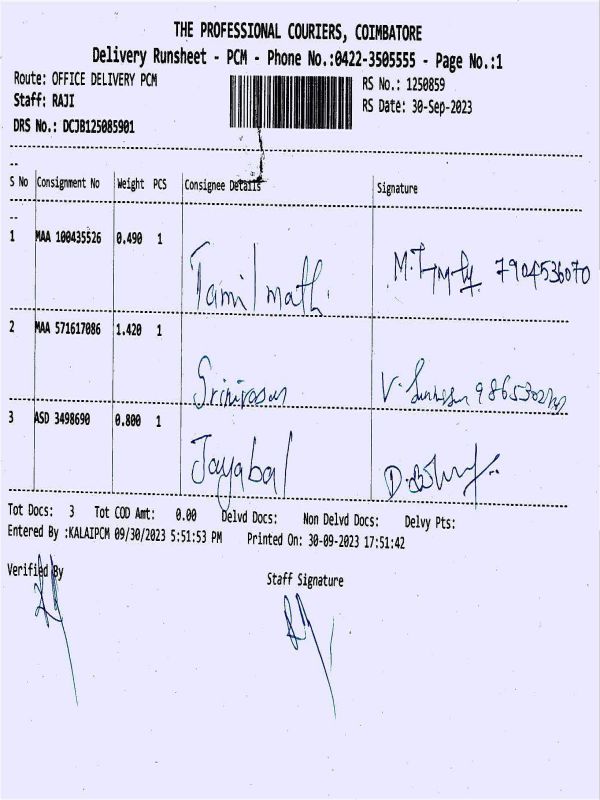 THE PROFESSIONAL COURIERS, COIMBATORE
Delivery Runsheet - PCM - Phone No.:0422-3505555 - Page No.:1
Route: OFFICE DELIVERY PCM
RS No.: 1250859
Staff: RAJI
RS Date: 30-Sep-2023
DRS No.: DCJB125085901
S No Consignment No Weight PCS Consignee Details Signature
1 MAA 100435526 0.490 1
Tamil math. M. 7904536070
2 MAA 571617086 1.420 1
Srinivasan V.
3 ASD 3498690 0.800 1
Jayabal D.
Tot Docs: 3 Tot COD Amt: 0.00 Delvd Docs: Non Delvd Docs: Delvy Pts:
Entered By :KALAIPCM 09/30/2023 5:51:53 PM Printed On: 30-09-2023 17:51:42
Verified By
Staff Signature